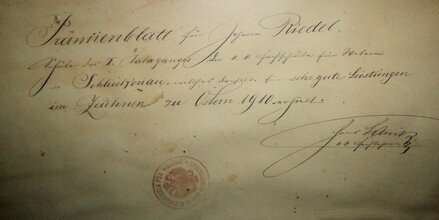 Prämienblatt für Johann Riedel,
Schüler des I. Jahrganges der k. k. Fachschule für Weberei
in Schluckenau, welches derselbe für sehr gute Leistungen
im Zeichnen zu Ostern 1910 erhielt.